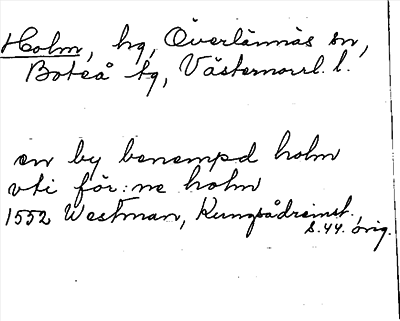 Holm, hg, Överlännäs sn,
Boteå tg, Västernorrl. l.
en by benempd holm
vti för:ne holm
1552 Westman, Kungsådreinst.,
s. 44. orig.